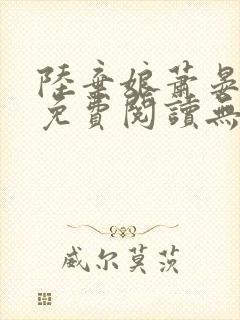 陸棄娘蕭晏
免費閱讀無
威尔莫茨